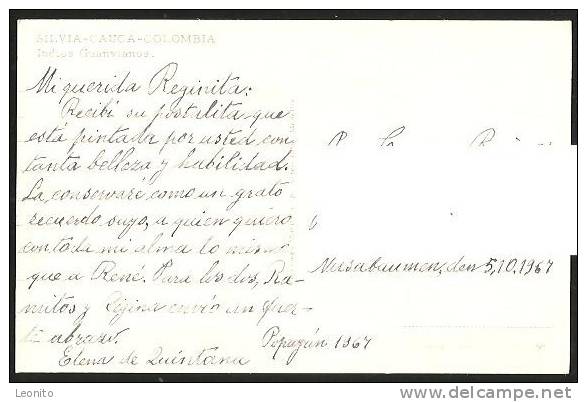 SILVIA-CAUCA-COLOMBIA
Indios Guambianos.
Mi querida Reginita:
Recibí su postalita que
está pintada por usted con
tanta belleza y habilidad.
La conservaré como un grato
recuerdo suyo, a quien quiero
con toda mi alma lo mismo
que a René. Para los dos, Re-
nitos y Regina envío un fuer-
te abrazo.
Elena de Quintana
Popayán 1967
den 5.10.1967
Leonito
www.delcampe.net